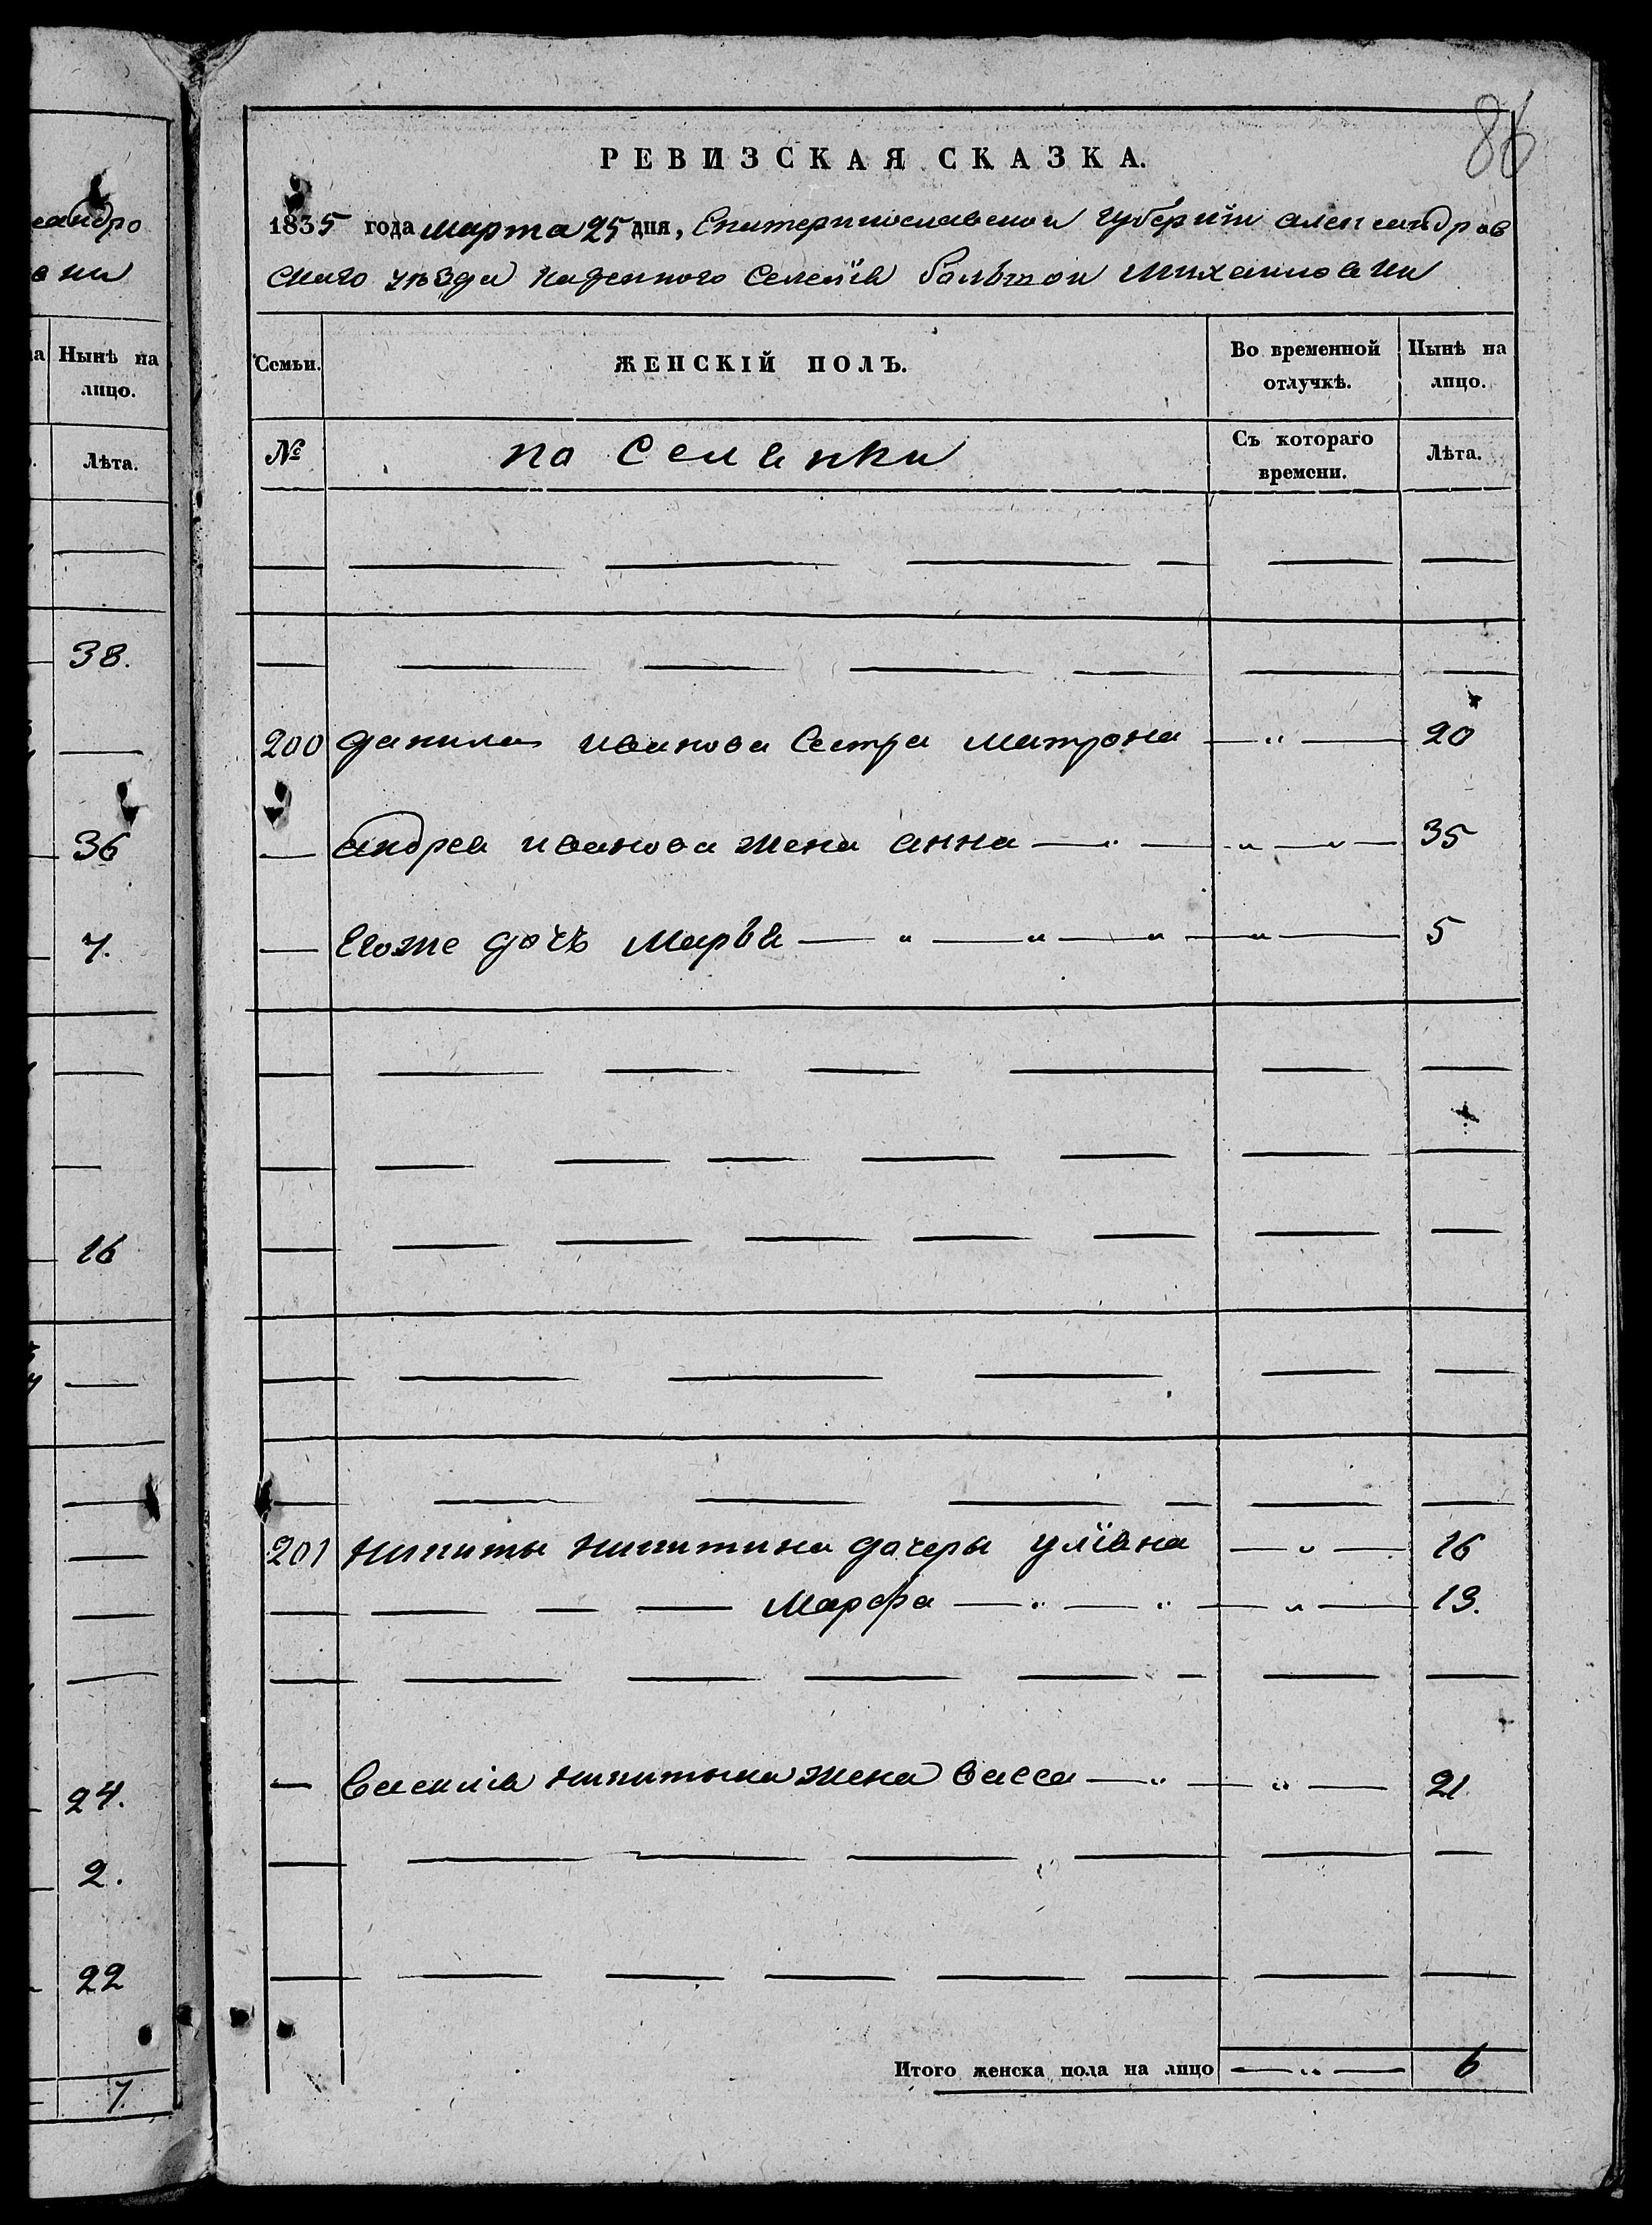 еандро
ѳ ки
Нынѣ на
лицо.
Лѣта.
38.
36
7.
16
24.
2.
22
7.
86
РЕВИЗСКАЯ СКАЗКА.
1835 года марта 25 дня, Екатеринославской губернїи александров
скаго уѣзда казенного селенїя большой михайловки
Семьи.
ЖЕНСКІЙ ПОЛЪ.
Во временной отлучкѣ.
Нынѣ на лицо.
№
поселянки
Съ котораго времени.
Лѣта.
200 данила иванова сестра матрона — " — 20
— андрея иванова жена анна — " — " — " — 35
— егоже дочь марья — " — " — " — " — 5
201 никиты никитина дочеры улїяна — " — 16
— — — — марфа — " — " — " — 13.
— василїя никитына жена васса — " — " — 21
Итого женска пола на лицо — " — 6